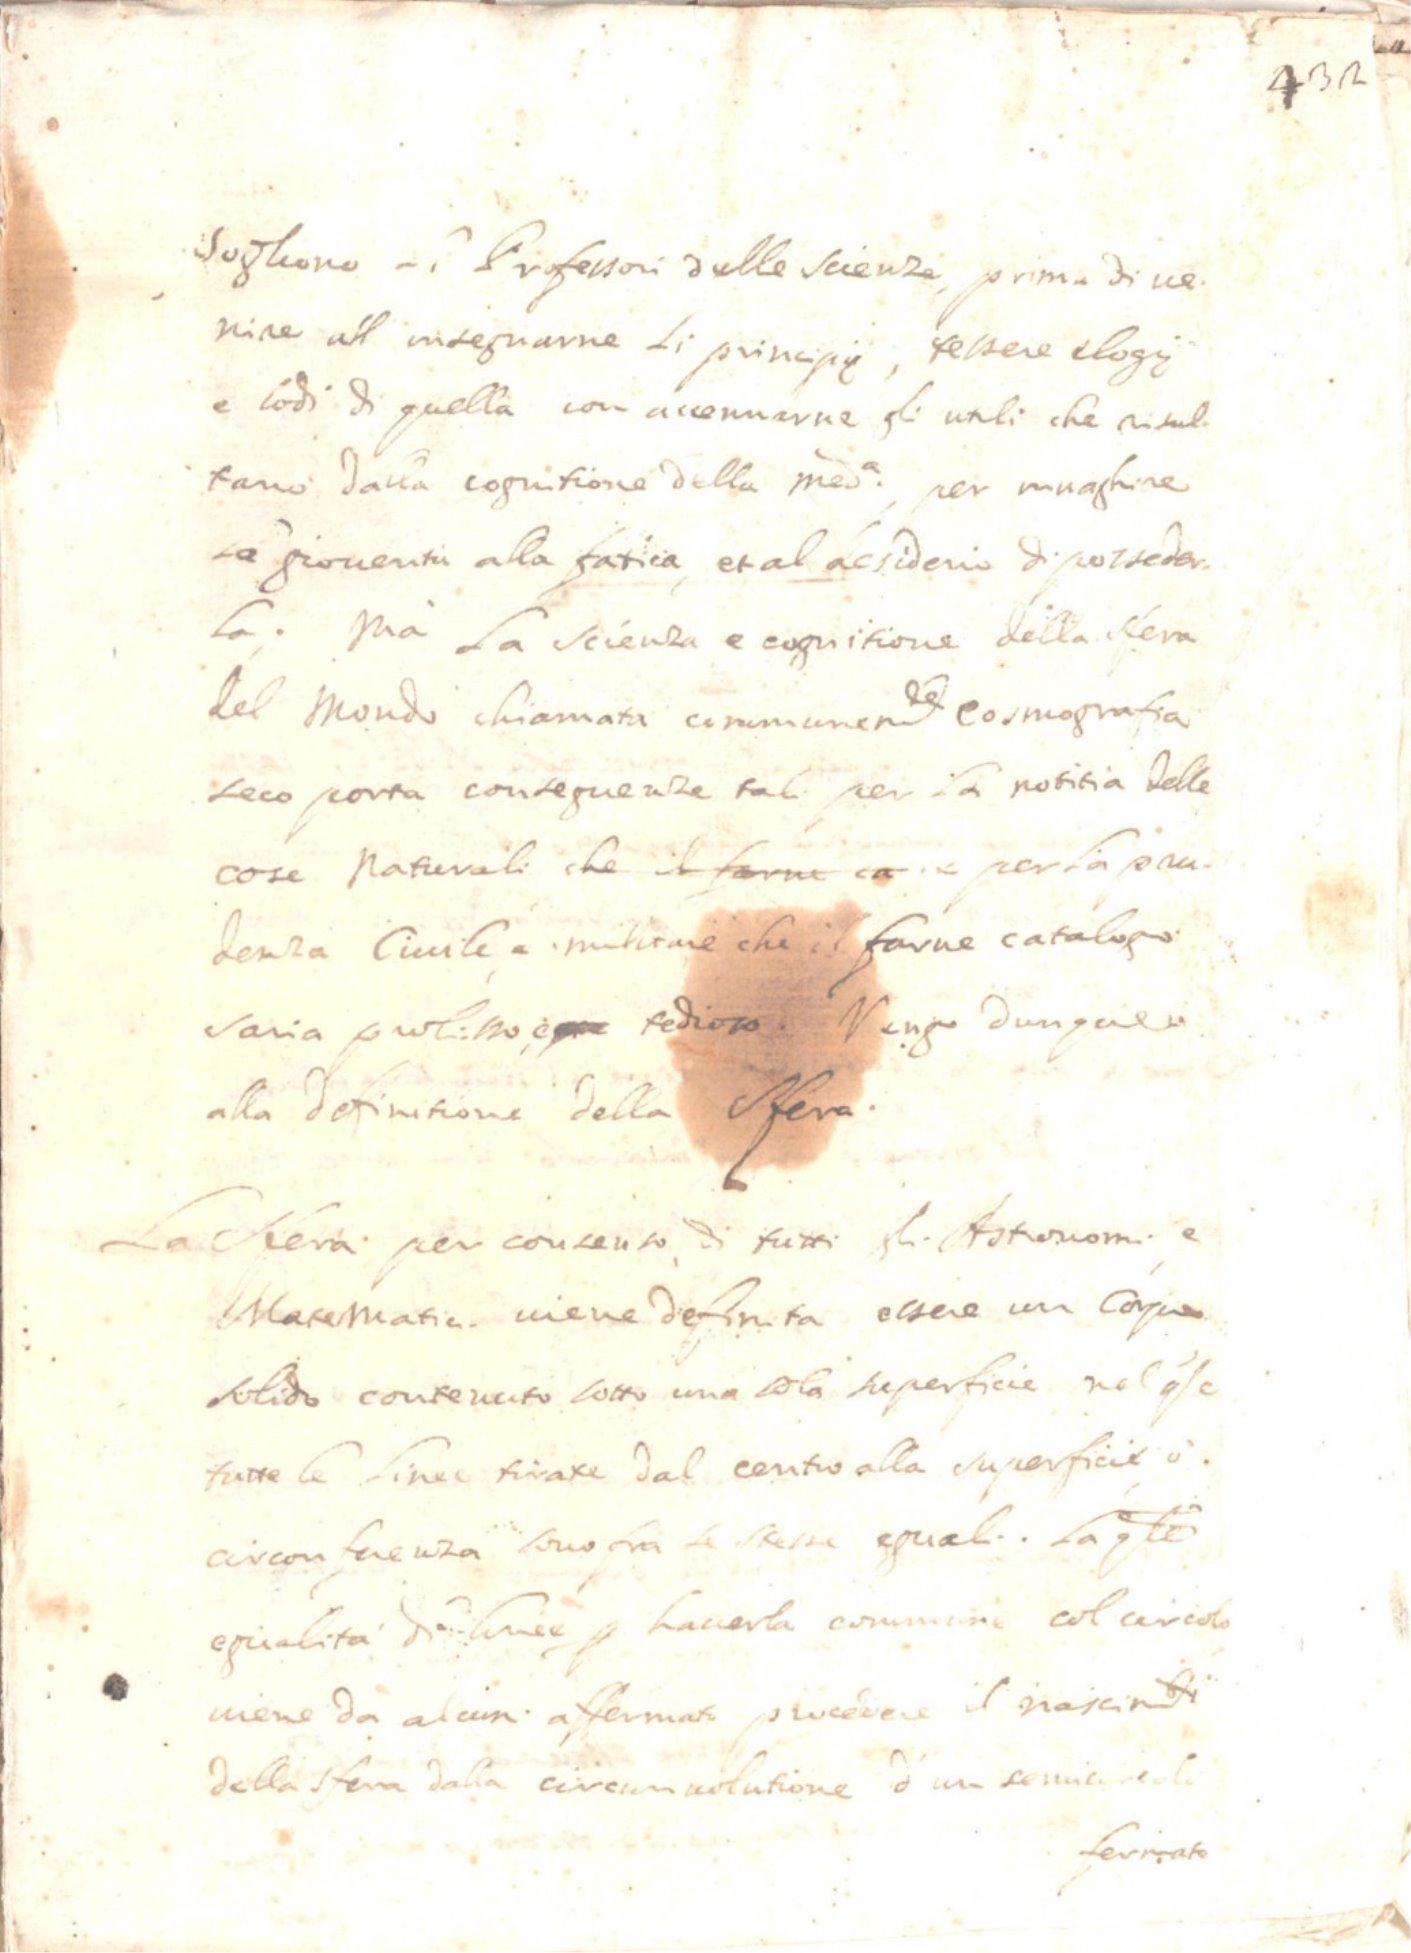 432
Sogliono i Professori delle scienze, prima di ue-
nire all insegnarne li principij, tessere elogij
e lodi di quella con accennarne gli utili che risul-
tano dalla cognitione della med.a, per inuaghire
la giouentù alla fatica, et al desiderio di posseder-
la. Mà La scienza e cognitione della sfera
del Mondo chiamata communem.te Cosmografia
seco porta conseguenze tali per la notitia delle
cose naturali che il farne ca e per la pru-
denza Ciuile, e militare che il farne catalogo
saria prolisso, e tedioso. Vengo dunque
alla definitione della Sfera.
La Sfera per consenso di tutti gli Astronomi e
Matematici uiene definita essere un Corpo
solido contenuto sotto una sola superficie nel qle
tutte le linee tirate dal centro alla superficie ò
circonferenza sono fra se stesse eguali. La qle
egualità di linee p hauerla commune col circolo
uiene da alcuni affermato procedere il nascim.to
della sfera dalla circumuolutione d'un semicircolo
fermato